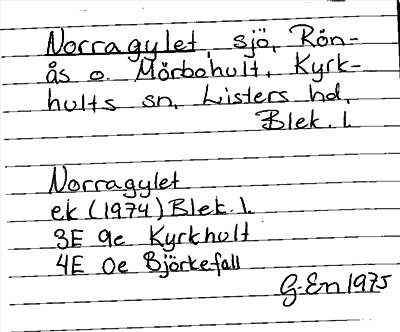 Norragylet, sjö, Rön-
ås o. Mörbohult, Kyrk-
hults sn, Listers hd,
Blek. l.
Norragylet
ek (1974) Blek. l.
3E 9e Kyrkhult
4E 0e Björkefall
G. En 1975